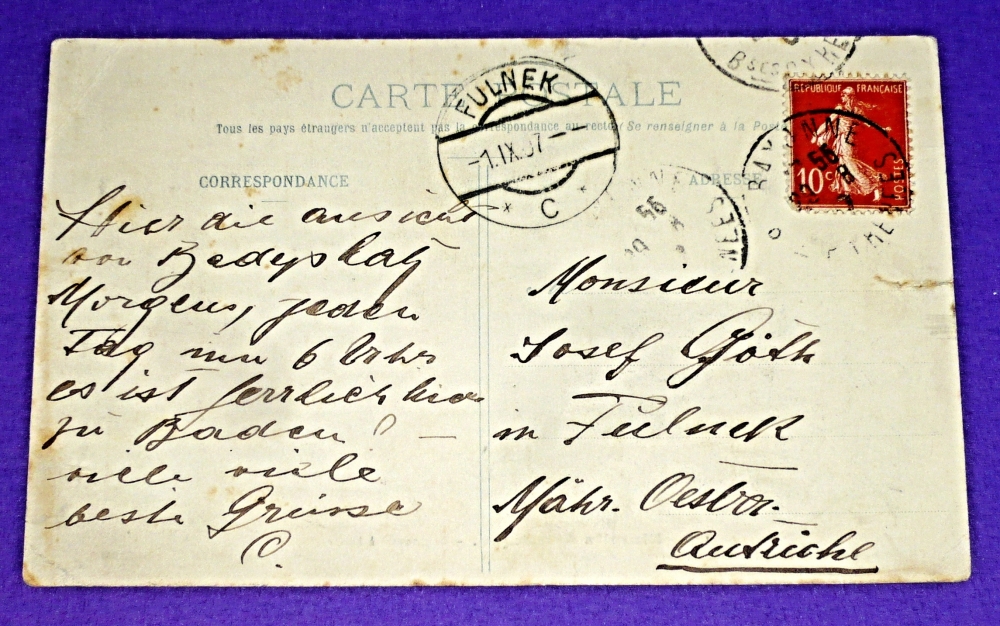 CARTE POSTALE
Tous les pays étrangers n'acceptent pas la correspondance au recto (Se renseigner à la Poste
CORRESPONDANCE
ADRESSE
FULNEK
-1.IX.07-
* C *
BAYONNE
Bses PYRE
RÉPUBLIQUE FRANÇAISE
10 c
POSTES
Hier die ansicht
von Badeplatz
Morgens, jeden
Tag um 6 Uhr
es ist herrlich hier
zu Baden! —
viele viele
beste Grüsse
C.
Monsieur
Josef Göth
in Fulnek
Mähr. Oestr.
Autriche